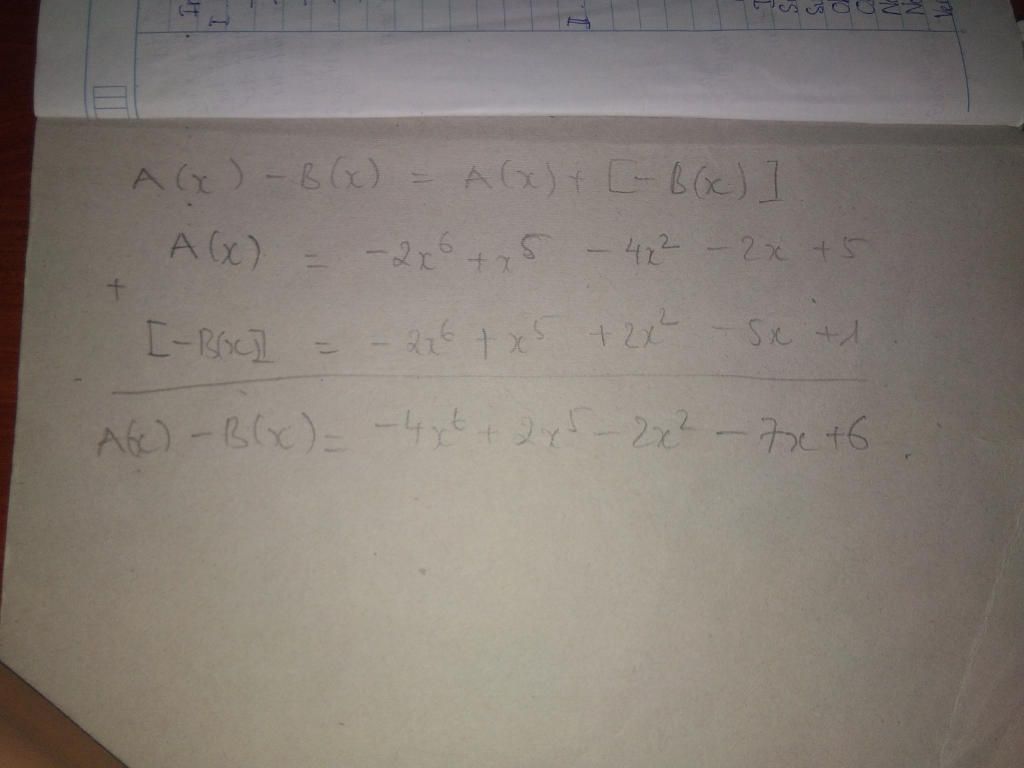 A(x) - B(x) = A(x) + [-B(x)]
A(x) = -2x⁶ + x⁵ - 4x² - 2x + 5
+
[-B(x)] = -2x⁶ + x⁵ + 2x² - 5x + 1
A(x) - B(x) = -4x⁶ + 2x⁵ - 2x² - 7x + 6